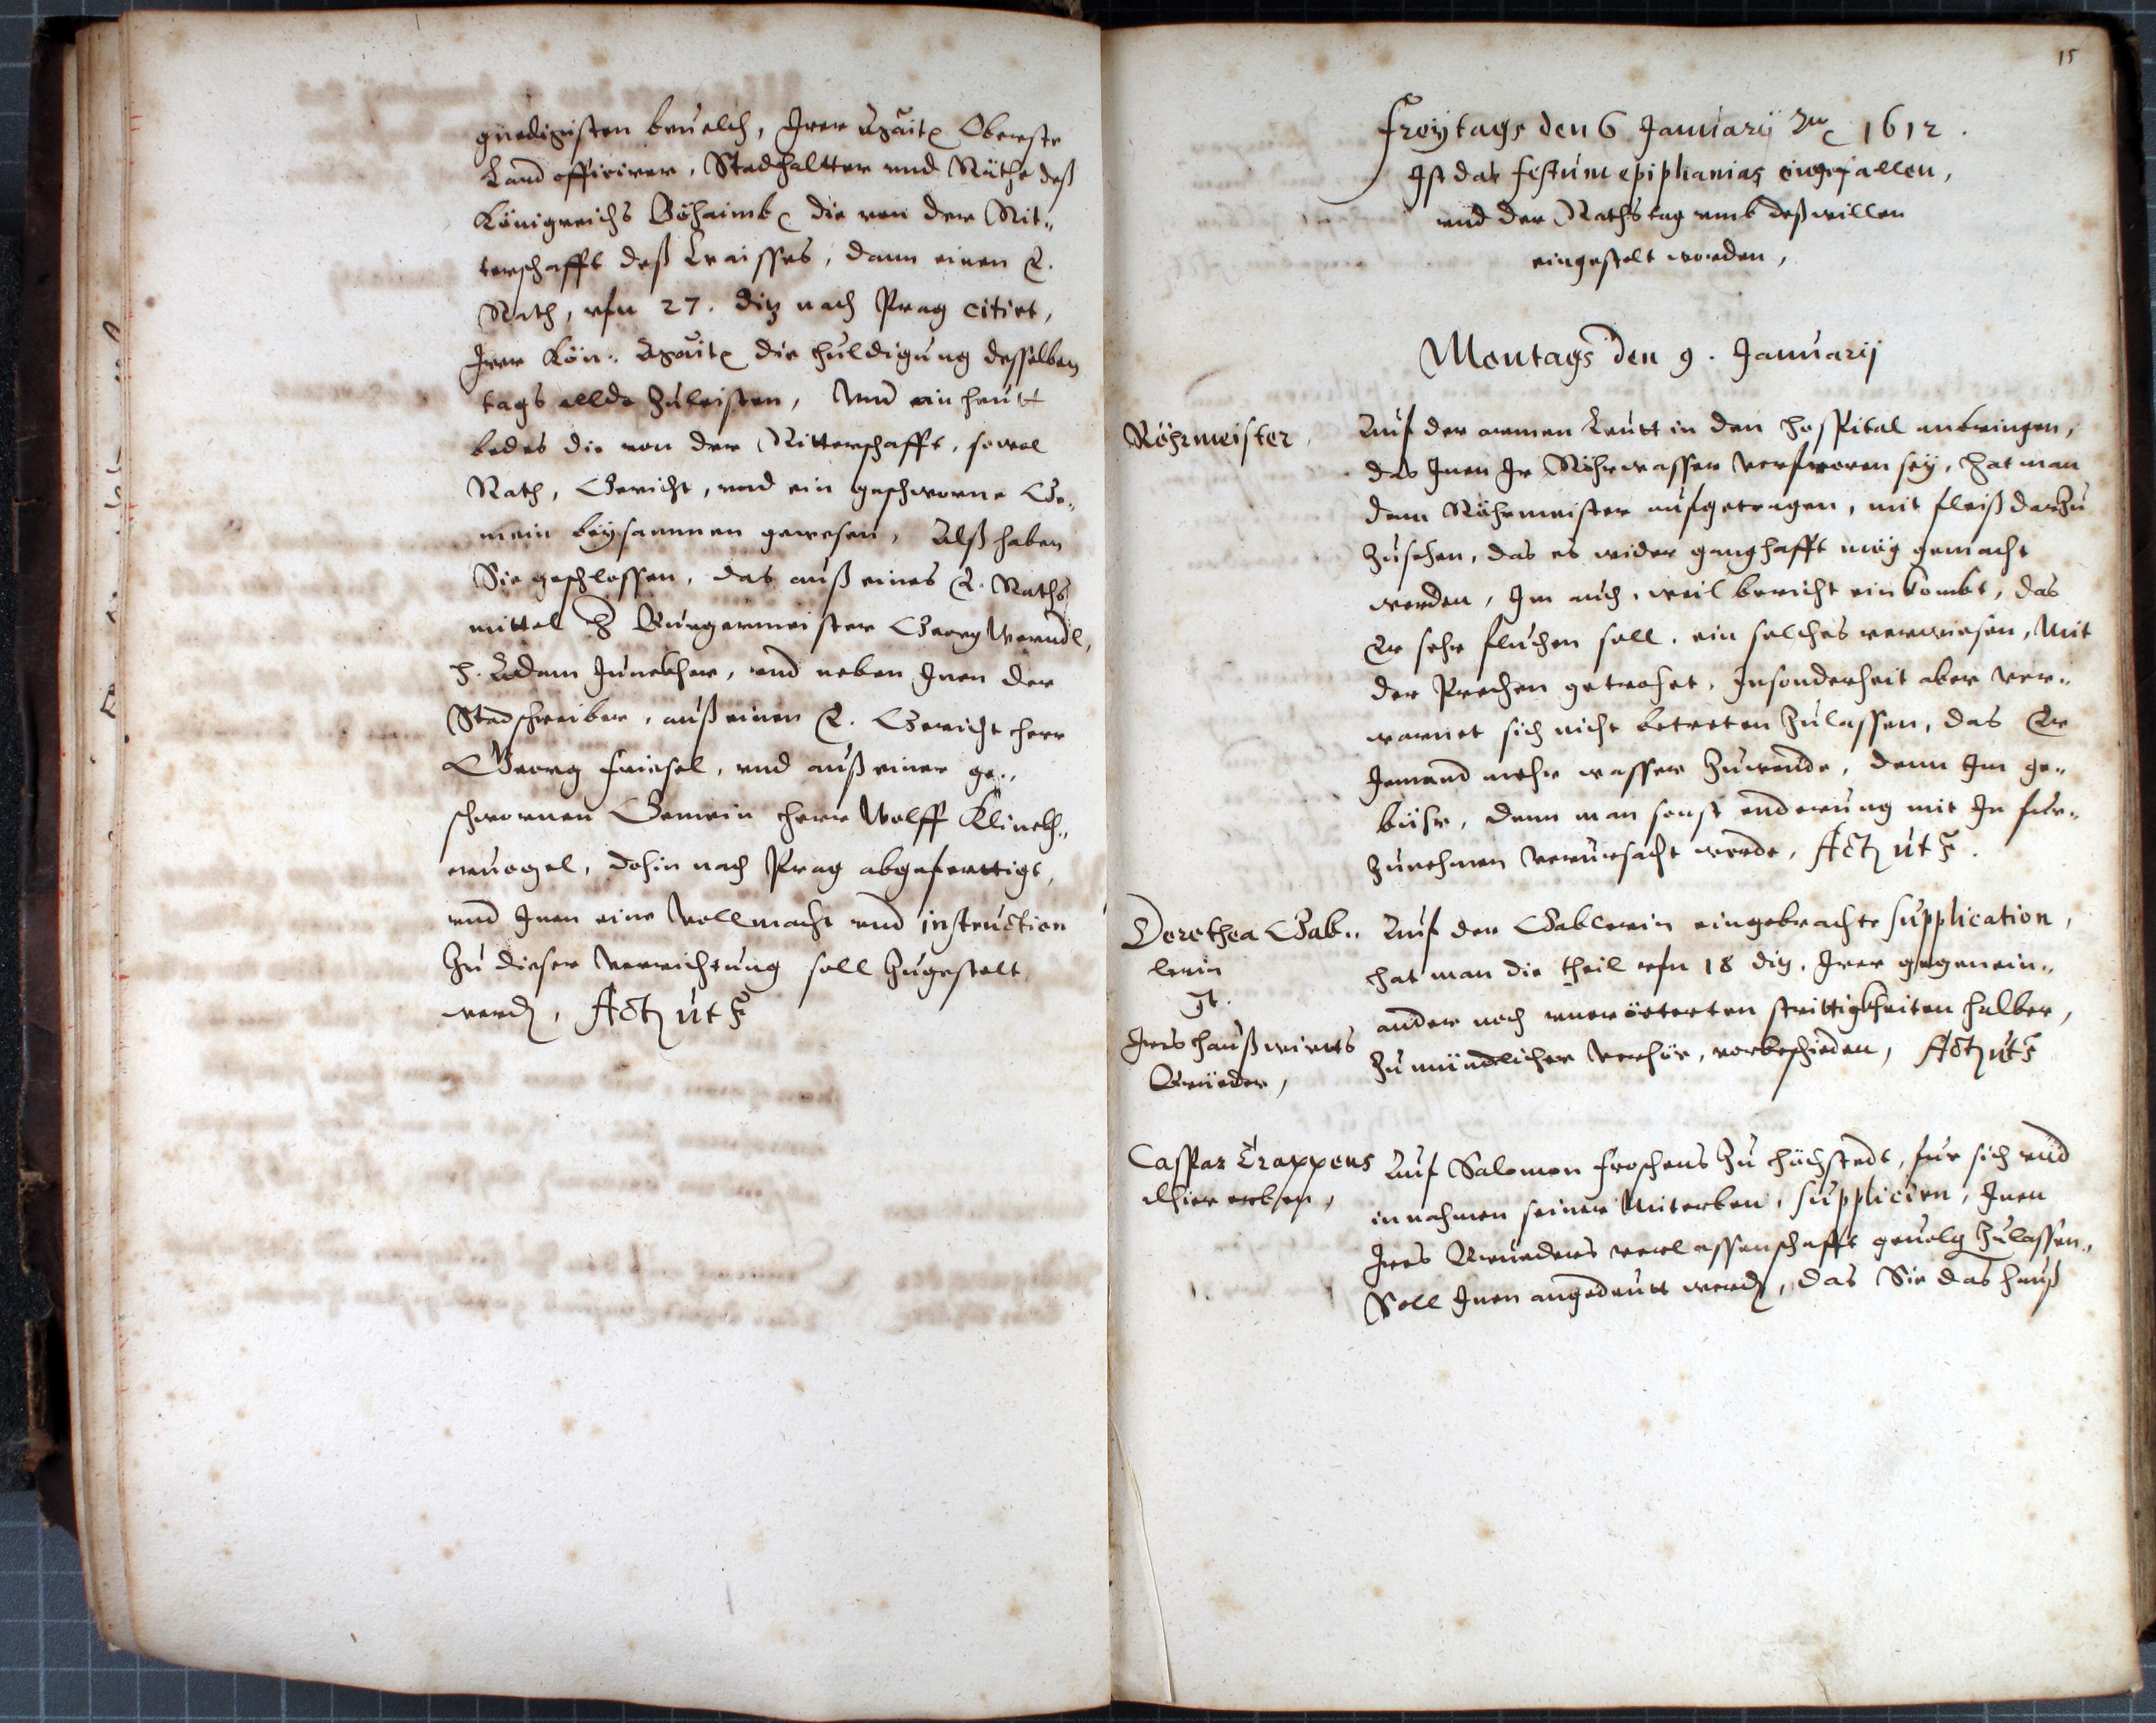 gnedigisten beuelch, Irer Mayᵗ Oberste
Land officirer, Stadhaltter und Räthe deß
Königreichs Böhaimb die von der Rit„
terschafft deß Craisses, dann einen E.
Rath, vfn 27. diz nach Prag citirt,
Irer Kön: Mayᵗ die huldigung desselben
tags allda zuleisten, Vnd ein heut
bedes die von der Ritterschafft, sowol
Rath, Gericht, vnd ein geschworne Ge„
mein beysammen gewesen, Alß haben
Sie geschlossen, das auß eines E. Raths
mittel H Burgermeister Georg Werndl,
H. Adam Junckher, vnd neben Inen der
Stadschreiber, auß einen E. Gericht herr
Georg friesel, vnd auß einer ge„
schwornen Gemein herr Wolff Klineth„
euogel, dohin nach Prag abgefertigt,
vnd Inen eine Vollmacht vnd instruction
zu dieser Verrichtung soll zugestelt
werdn, Act ut s
15
Freytags den 6 January 1612.
Ist das festum epiphanias eingefallen,
vnd der Rathstag vmb deßwillen
eingestelt worden,
Montags den 9. January
Röhrmeister,
Auf der armen Leutt in den hospital anbringen,
das Inen Ir Röhrwasser verfroren sey, hat man
dem Röhrmeister aufgetragen, mit fleiß darzu
zusehen, das es wider ganghafft mög gemacht
werden, Im auch, weil bericht einkombt, das
Er sehr fluchen soll, ein solches verwiesen, Mit
der Prechen getrohet, Insonderheit aber ver„
warnet sich nicht betreten zulassen, das Er
Jemand mehr wasser zuwende, denn Im ge„
bühr, denn man sonst enderung mit In für„
zunehmen verursacht werde, Act ut s.
Dorothea Gab„
lerin
Ires haußwirtts
Brüeder,
Auf der Gablerin eingebrachte supplication,
hat man die theil vfn 18 diz, Irer gegenein„
ander noch vnerörterten strittigkheiten halber,
zu mündlicher Verhör, vorbeschieden, Act ut s
Caspar Trappens
erben,
Auf Salomon froschens zu höchstedt, für sich vnd
in nahmen seiner Miterben, suppliciren, Inen
Ires Brueders verlassenschafft geuolg zulassen,
Soll Inen angedeutt werdn, das Sie das hauß